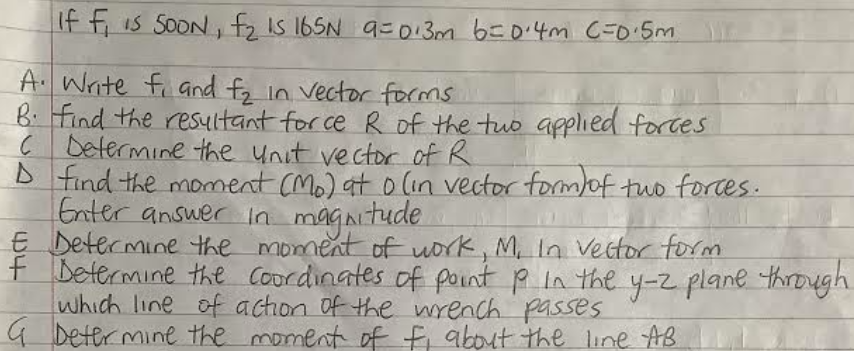 If f₁ is 500N, f₂ is 165N a=0.3m b=0.4m C=0.5m
A. Write f₁ and f₂ in vector forms
B. find the resultant force R of the two applied forces
C Determine the unit vector of R
D find the moment (Mo) at O (in vector form) of two forces.
Enter answer in magnitude
E Determine the moment of work, M, In vector form
f Determine the coordinates of point P In the y-z plane through
which line of action of the wrench passes
G Determine the moment of f₁ about the line AB